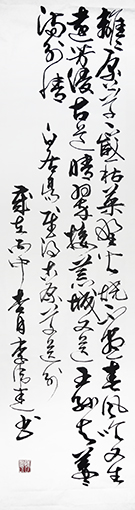 離〻原上草一歲一枯榮野火燒不盡春風吹又生
遠芳侵古道晴翠接荒城又送王孫去萋〻
滿別情
白居易賦得古原草送別
歲在丙申 月李 書